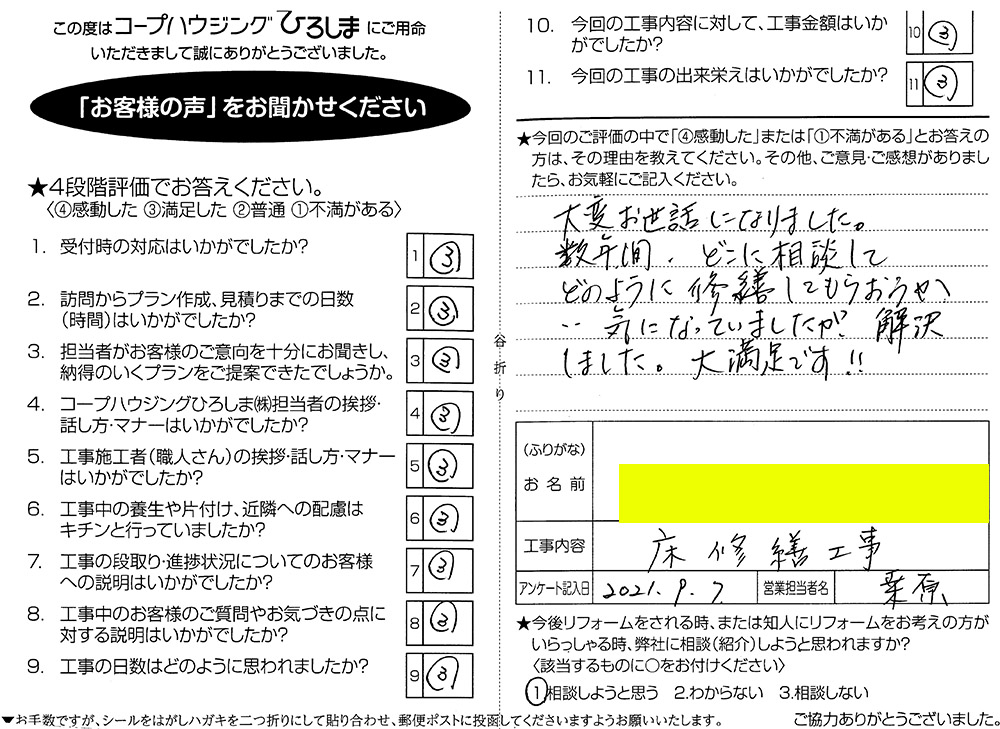 この度はコープハウジングひろしまにご用命
いただきまして誠にありがとうございました。
「お客様の声」をお聞かせください
★4段階評価でお答えください。
〈④感動した ③満足した ②普通 ①不満がある〉
1. 受付時の対応はいかがでしたか?
1 ③
2. 訪問からプラン作成、見積りまでの日数
(時間)はいかがでしたか?
2 ③
3. 担当者がお客様のご意向を十分にお聞きし、
納得のいくプランをご提案できたでしょうか。
3 ③
4. コープハウジングひろしま㈱担当者の挨拶・
話し方・マナーはいかがでしたか?
4 ③
5. 工事施工者(職人さん)の挨拶・話し方・マナー
はいかがでしたか?
5 ③
6. 工事中の養生や片付け、近隣への配慮は
キチンと行っていましたか?
6 ③
7. 工事の段取り・進捗状況についてのお客様
への説明はいかがでしたか?
7 ③
8. 工事中のお客様のご質問やお気づきの点に
対する説明はいかがでしたか?
8 ③
9. 工事の日数はどのように思われましたか?
9 ③
谷折り
10. 今回の工事内容に対して、工事金額はいか
がでしたか?
10 ③
11. 今回の工事の出来栄えはいかがでしたか?
11 ③
★今回のご評価の中で「④感動した」または「①不満がある」とお答えの
方は、その理由を教えてください。その他、ご意見・ご感想がありまし
たら、お気軽にご記入ください。
大変お世話になりました。
数年間、どこに相談して
どのように修繕してもらおうか
‥気になっていましたが解決
しました。大満足です!!
(ふりがな)
お名前
工事内容 床修繕工事
アンケート記入日 2021.9.7 営業担当者名 栗原
★今後リフォームをされる時、または知人にリフォームをお考えの方が
いらっしゃる時、弊社に相談(紹介)しようと思われますか?
〈該当するものに○をお付けください〉
①相談しようと思う 2.わからない 3.相談しない
▼お手数ですが、シールをはがしハガキを二つ折りにして貼り合わせ、郵便ポストに投函してくださいますようお願いいたします。
ご協力ありがとうございました。